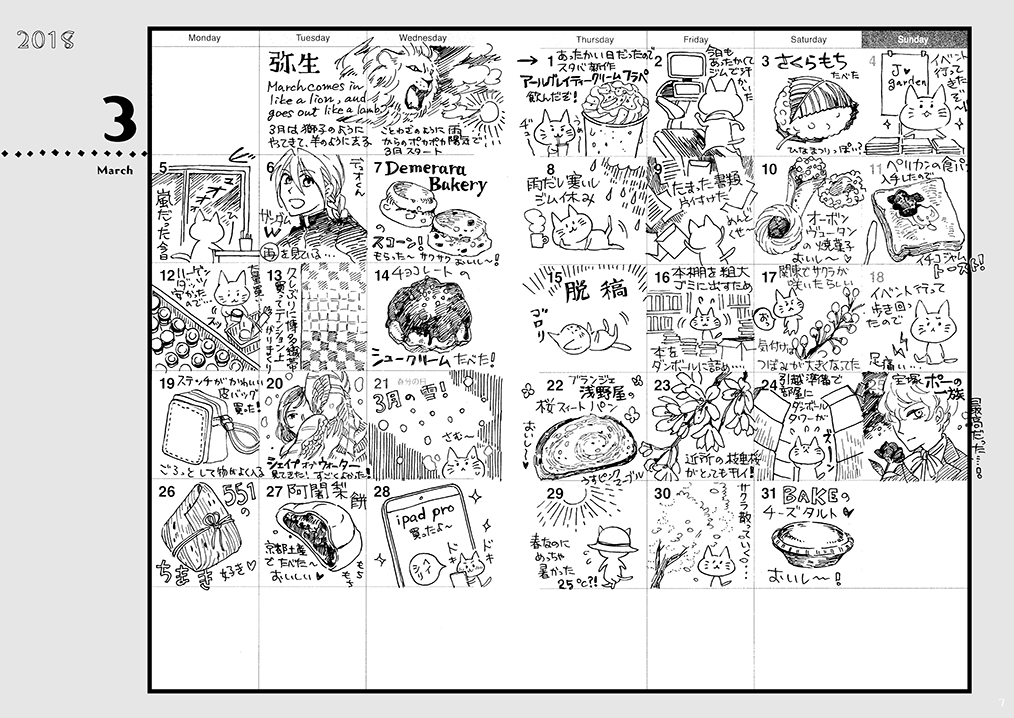 2018
3
March
Monday
Tuesday
Wednesday
Thursday
Friday
Saturday
Sunday
弥生
March comes in
like a lion, and
goes out like a lamb.
3月は獅子のように
やってきて、羊のように去る
ことわざのように雨
からのポカポカ陽気で
3月スタート
1
あったかい日だったので
スタバ新作
アールグレイティークリームフラペ
飲んだぞ!
2
今日も
あったかくて
ジムで汗
かいた
3
さくらもち
たべた
ひなまつりっぽい…?
4
J♥
garden
イベント
行って
きたぞ〜
5
嵐だった今日
6
デュオくん
ガンダム
W
再を見ている…
7
Demerara
Bakery
の
スコーン!
もらった〜サクサクおいし〜!
8
雨だし寒いし
ジム休み
9
たまった書類
片付けた
めんど
くせ〜
10
オーボン
ヴュータン
の焼菓子
おいし〜♥
11
ペリカンの食パン
入手したので
イチゴジャム
トースト!
12
ハーゲン
ダッツ
安かった
ので…
大量買い
13
久しぶりに博多織帯
買ってテンション上
14
チョコレートの
シュークリームたべた!
15
脱稿
ゴロリ
16
本棚を粗大
ゴミに出すため
本を
ダンボールに詰め…
17
関東でサクラが
咲いたらしい
おっ
気付けば
つぼみが大きくなってた
18
イベント行って
歩き回っ
たので
足痛い…
19
ステッチがかわいい
皮バッグ
買った!
ころっとして物がよく入る
20
シェイプオブウォーター
見てきた!すごくよかった!
21
春分の日
3月の雪!
さむ〜
22
ブランジェ
浅野屋の
桜スイートパン
おいし〜♥
うすピンクマーブル
23
近所の枝垂桜
がとってもキレイ!
24
引越準備で
部屋に
ダンボール
タワーが
ズーン
宝塚ポーの
一族
最高だった…!
26
551
の
ちまき
好き♥
27
阿闍梨
餅
京都土産
でたべた〜
おいしい♥
もちもち
28
ipad pro
買ったよ〜
ヘイ
シリ
ドキドキ
29
春なのに
めっちゃ
暑かった
25℃?!
30
サクラ散っていく…
31
BAKEの
チーズタルト♥
おいし〜!
7